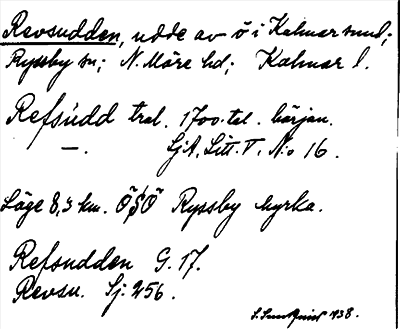 Revsudden, udde av ö i Kalmar sund;
Ryssby sn; N. Möre hd; Kalmar l.
Refsudd trol. 1700-tal. början.
—. SjA, Litt. V, No 16.
Läge 8,3 km. ÖSÖ Ryssby kyrka.
Refsudden G. 17.
Revsu. Sj. 256.
1938.